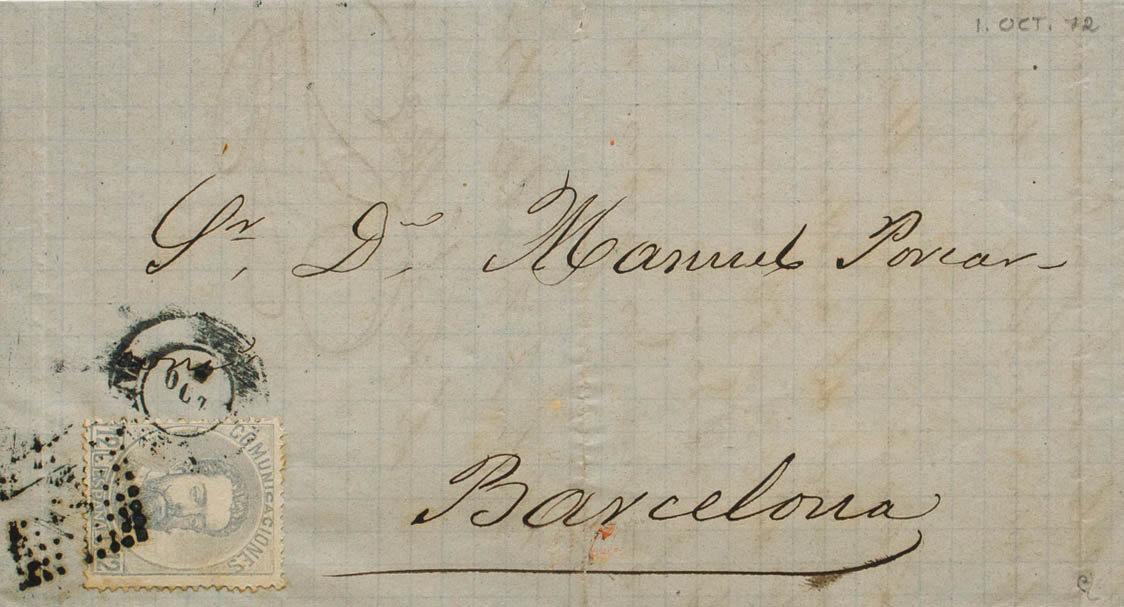 1. OCT. 72
Sr. Dn. Manuel Porcar
OCT
COMUNICACIONES
12
Barcelona